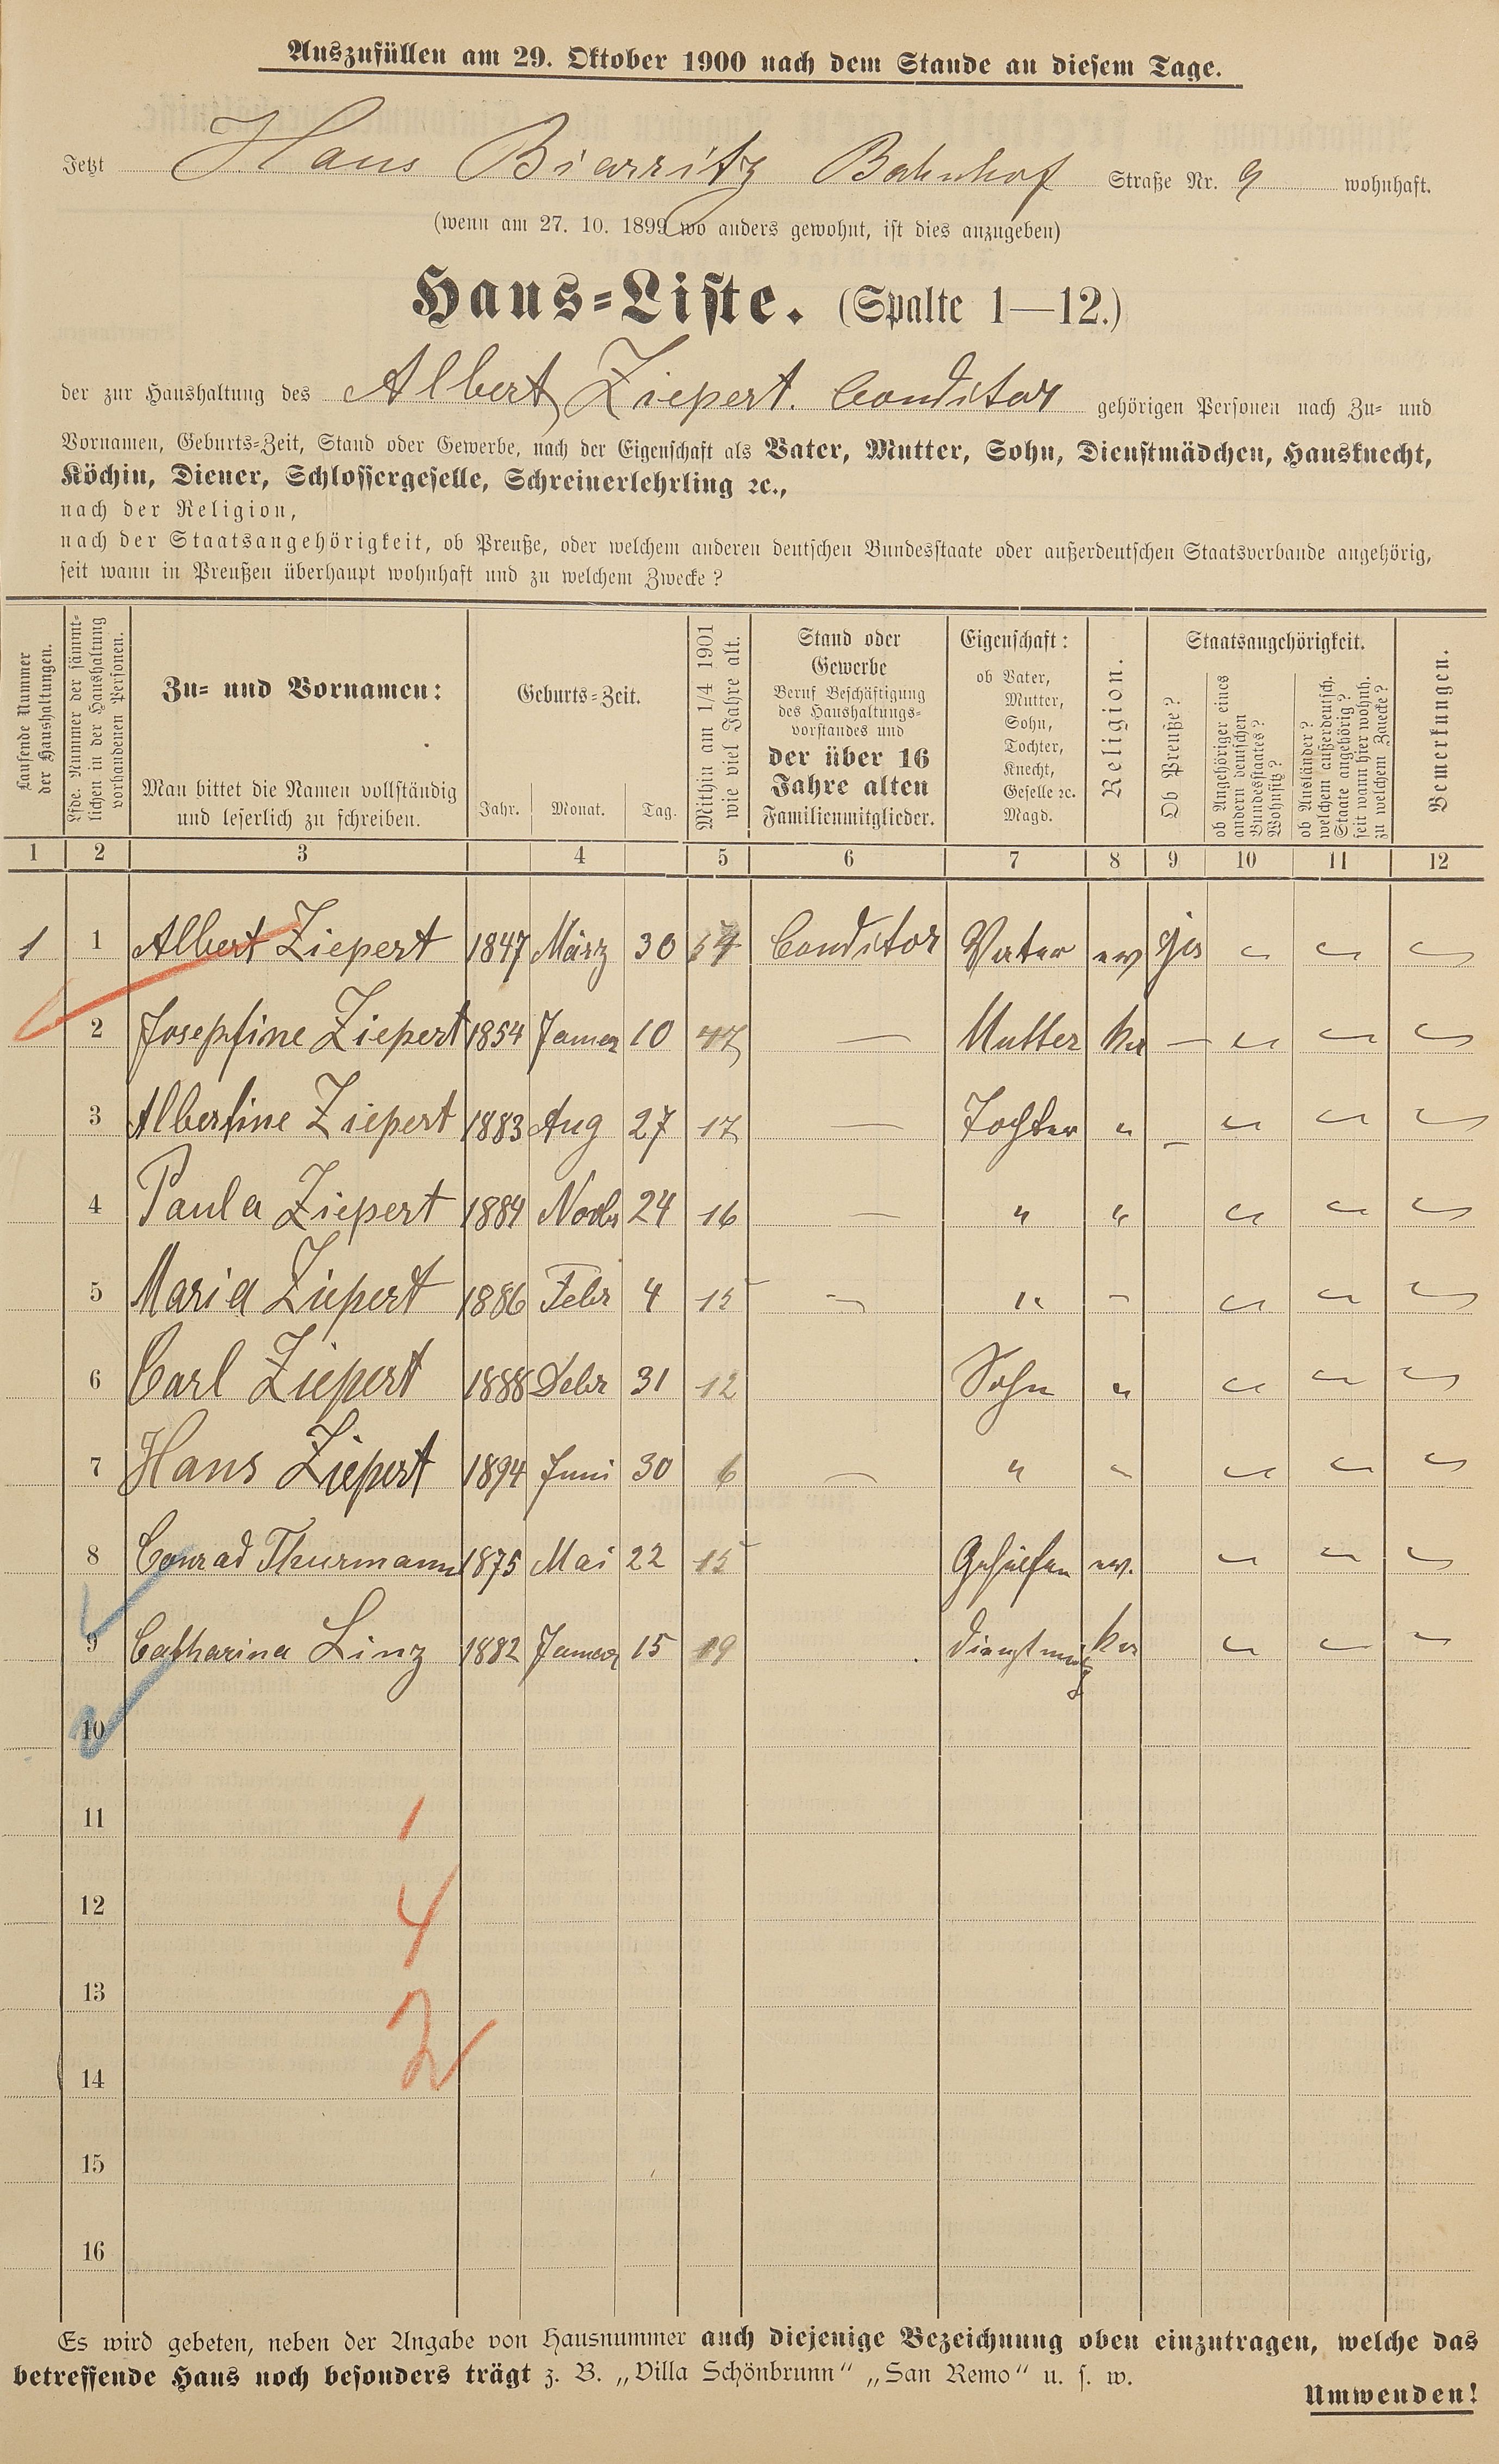 Auszufüllen am 29. Oktober 1900 nach dem Stande an diesem Tage.
Jetzt Haus Biarritz Bahnhof Straße Nr. 9 wohnhaft.
(wenn am 27. 10. 1899 wo anders gewohnt, ist dies anzugeben)
Haus-Liste. (Spalte 1—12.)
der zur Haushaltung des Albert Ziepert. Conditor gehörigen Personen nach Zu- und
Vornamen, Geburts-Zeit, Stand oder Gewerbe, nach der Eigenschaft als Vater, Mutter, Sohn, Dienstmädchen, Hausknecht,
Köchin, Diener, Schlossergeselle, Schreinerlehrling ꝛc.,
nach der Religion,
nach der Staatsangehörigkeit, ob Preuße, oder welchem anderen deutschen Bundesstaate oder außerdeutschen Staatsverbande angehörig,
seit wann in Preußen überhaupt wohnhaft und zu welchem Zwecke?
Laufende Nummer
der Haushaltungen.
Lfde. Nummer der sämmt-
lichen in der Haushaltung
vorhandenen Personen.
Zu- und Vornamen:
Man bittet die Namen vollständig
und leserlich zu schreiben.
Geburts-Zeit.
Jahr. Monat. Tag.
Mithin am 1/4 1901
wie viel Jahre alt.
Stand oder
Gewerbe
Beruf Beschäftigung
des Haushaltungs-
vorstandes und
der über 16
Jahre alten
Familienmitglieder.
Eigenschaft:
ob Vater,
Mutter,
Sohn,
Tochter,
Knecht,
Geselle ꝛc.
Magd.
Religion.
Staatsangehörigkeit.
Ob Preuße?
ob Angehöriger eines
andern deutschen
Bundesstaates?
Wohnsitz?
ob Ausländer?
welchem außerdeutsch.
Staate angehörig?
seit wann hier wohnh.
zu welchem Zwecke?
Bemerkungen.
1 2 3 4 5 6 7 8 9 10 11 12
1 1 Albert Ziepert 1847 März 30 54 Conditor Vater ev ja
2 Josephine Ziepert 1854 Januar 10 47 — Mutter ka —
3 Albertine Ziepert 1883 Aug 27 17 — Tochter " —
4 Paula Ziepert 1884 Novbr 24 16 — " "
5 Maria Ziepert 1886 Febr 4 15 — " "
6 Carl Ziepert 1888 31 12 Sohn "
7 Hans Ziepert 1894 Juni 30 6 — " "
8 Conrad Thurmann 1875 Mai 22 15 Gehülfen ev.
9 Catharina Linz 1882 Januar 15 19 ka
10
11
1
12
4
13
2
14
15
16
Es wird gebeten, neben der Angabe von Hausnummer auch diejenige Bezeichnung oben einzutragen, welche das
betreffende Haus noch besonders trägt z. B. „Villa Schönbrunn“ „San Remo“ u. s. w.
Umwenden!